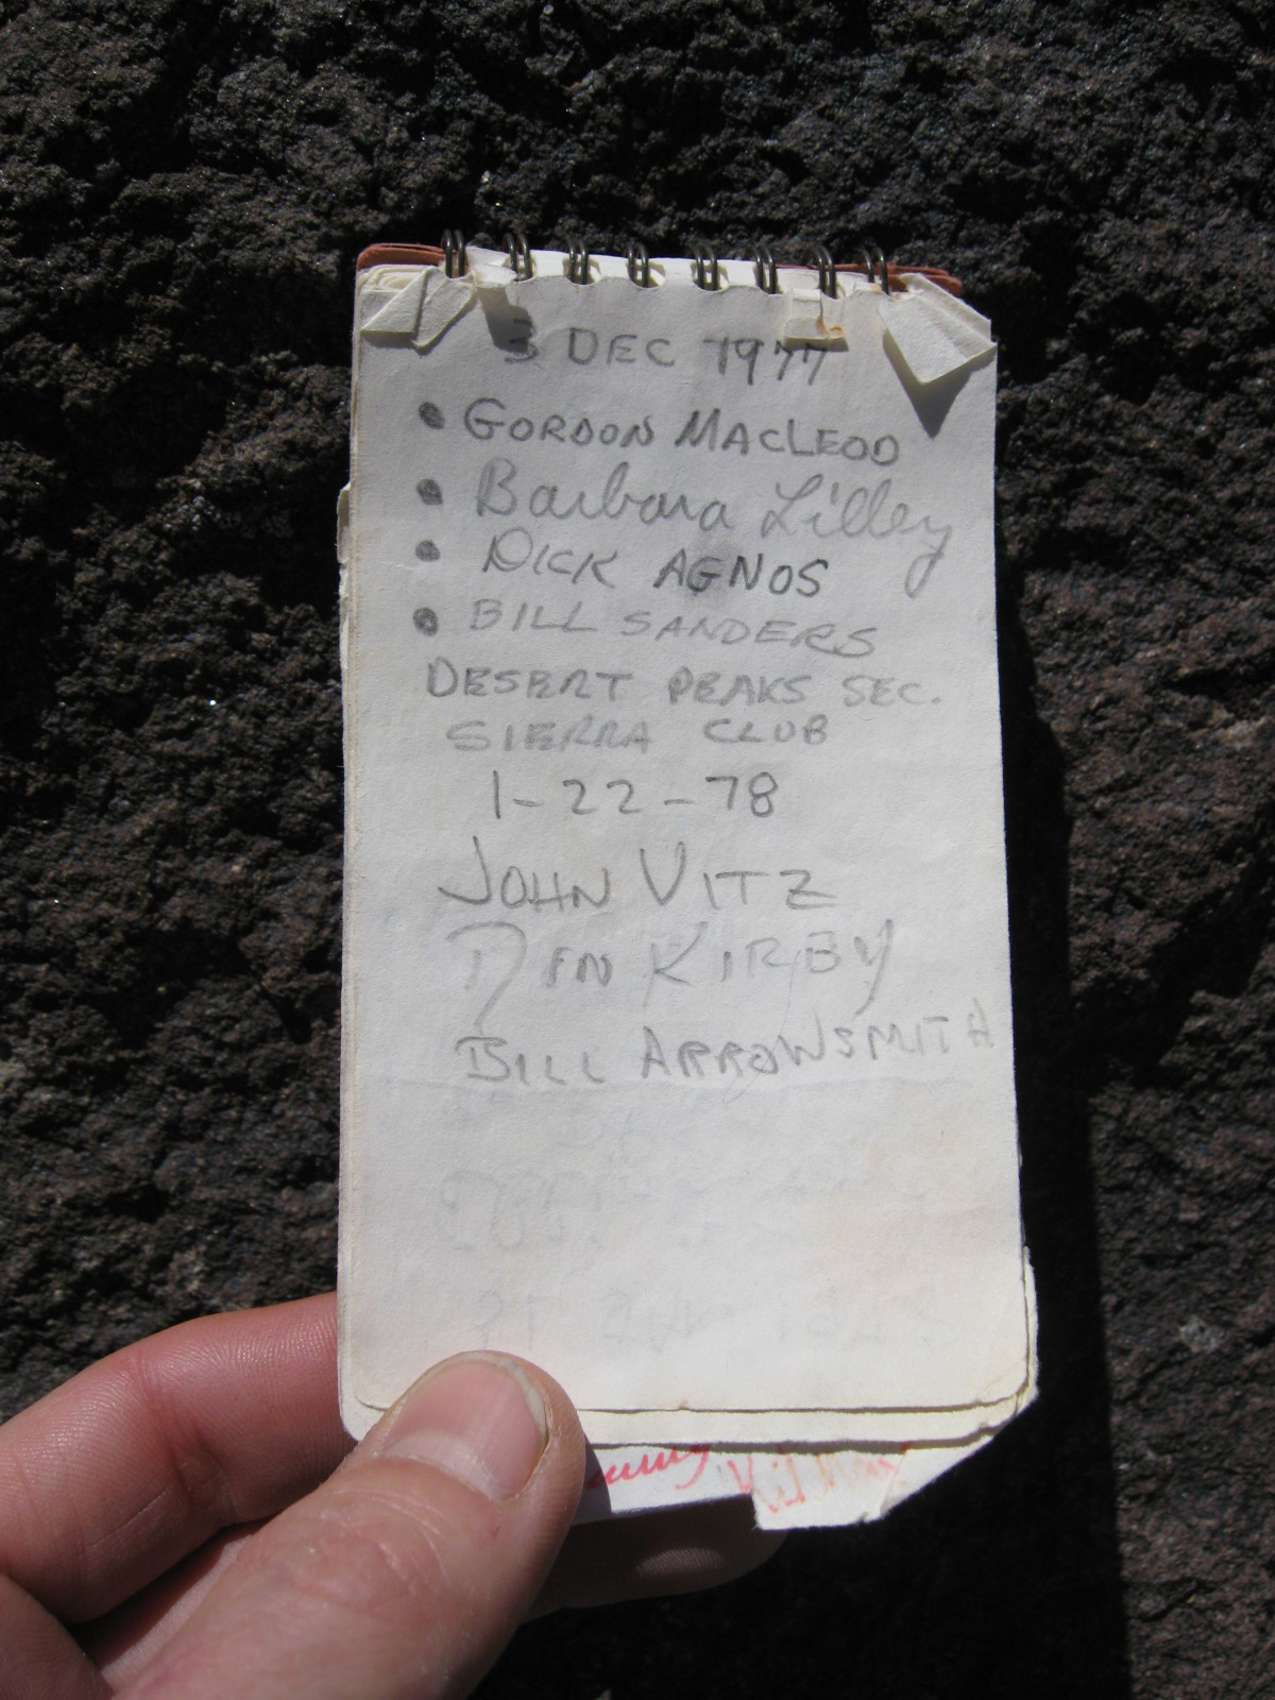 3 DEC 1977
• GORDON MACLEOD
• Barbara Lilley
• DICK AGNOS
• BILL SANDERS
DESERT PEAKS SEC.
SIERRA CLUB
1-22-78
JOHN VITZ
KIRBY
BILL ARROWSMITH